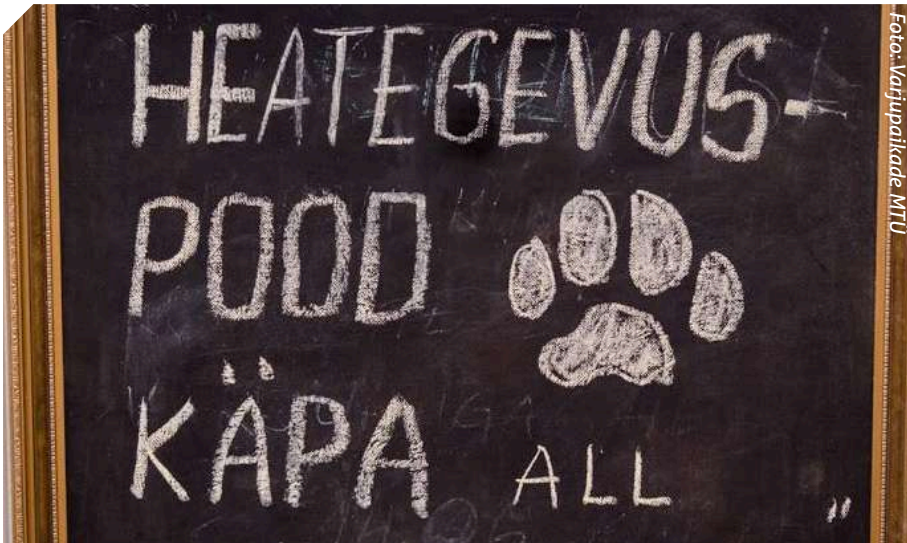 HEATEGEVUS-
POOD
KÄPA ALL
"
Foto: Varjupaikade MTÜ